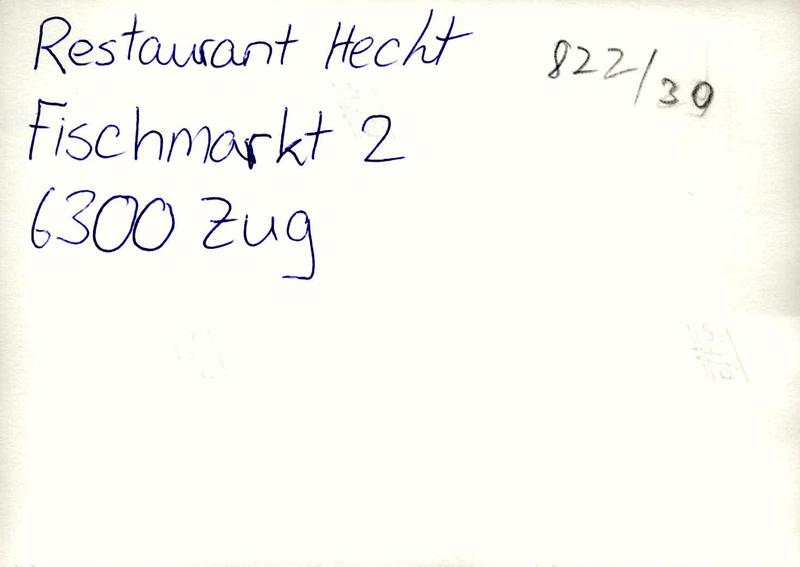 Restaurant Hecht
822/30
Fischmarkt 2
6300 Zug